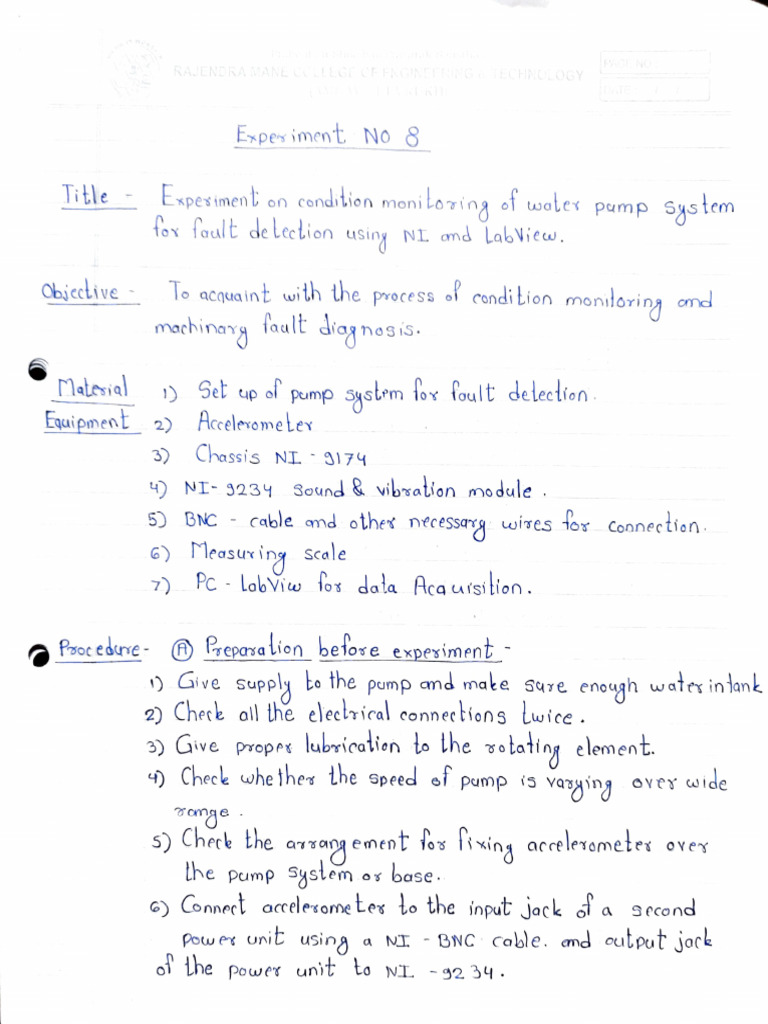 RAJENDRA MANE COLLEGE OF ENGINEERING & TECHNOLOGY
PAGE NO
DATE / /
Experiment No 8
Title - Experiment on condition monitoring of water pump system
for fault detection using NI and LabView.
Objective - To acquaint with the process of condition monitoring and
machinary fault diagnosis.
Material 1) Set up of pump system for fault detection.
Equipment 2) Accelerometer
3) Chassis NI - 9174
4) NI- 9234 sound & vibration module.
5) BNC - cable and other necessary wires for connection.
6) Measuring scale
7) PC - LabView for data Acquisition.
Procedure - (A) Preparation before experiment -
1) Give supply to the pump and make sure enough water in tank
2) Check all the electrical connections twice.
3) Give proper lubrication to the rotating element.
4) Check whether the speed of pump is varying over wide
range.
5) Check the arrangement for fixing accelerometer over
the pump system or base.
6) Connect accelerometer to the input jack of a second
power unit using a NI - BNC cable. and output jack
of the power unit to NI. - 9234.